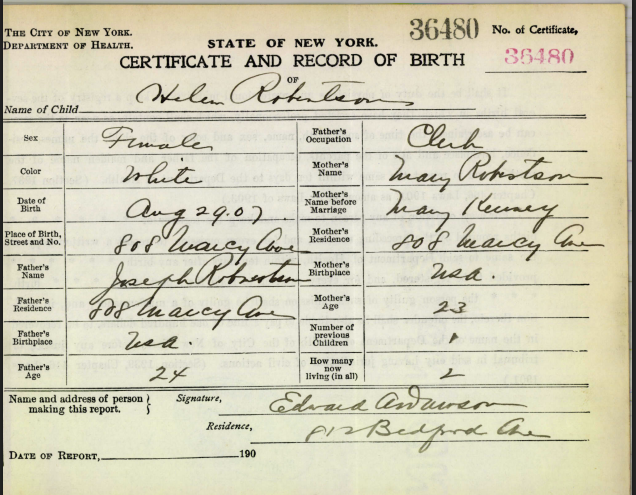 THE CITY OF NEW YORK.
DEPARTMENT OF HEALTH.
STATE OF NEW YORK.
36480
No. of Certificate,
36480
CERTIFICATE AND RECORD OF BIRTH
OF
Name of Child Helen Robertson
Sex Female
Father's Occupation Clerk
Color White
Mother's Name Mary Robertson
Date of Birth Aug 29.07
Mother's Name before Marriage Mary
Place of Birth, Street and No. 808 Marcy Ave
Mother's Residence 808 Marcy Ave
Father's Name Joseph Robertson
Mother's Birthplace USA.
Father's Residence 808 Marcy Ave
Mother's Age 23
Father's Birthplace USA.
Number of previous Children 1
Father's Age 24
How many now living (in all) 2
Name and address of person making this report.
Signature, Edward
Residence, 812 Bedford Ave
DATE OF REPORT, 190